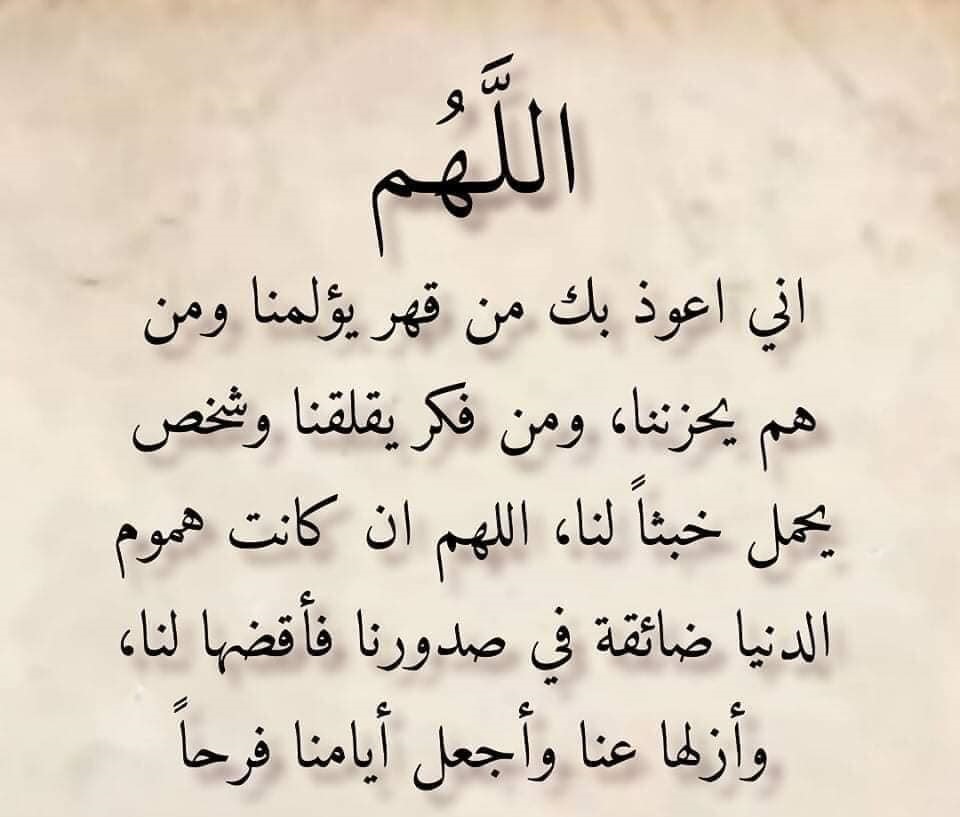 اللَّهُم
اني اعوذ بك من قهر يؤلمنا ومن
هم يحزننا، ومن فكر يقلقنا وشخص
يحمل خبثاً لنا، اللهم ان كانت هموم
الدنيا ضائقة في صدورنا فأقضها لنا،
وأزلها عنا وأجعل أيامنا فرحاً